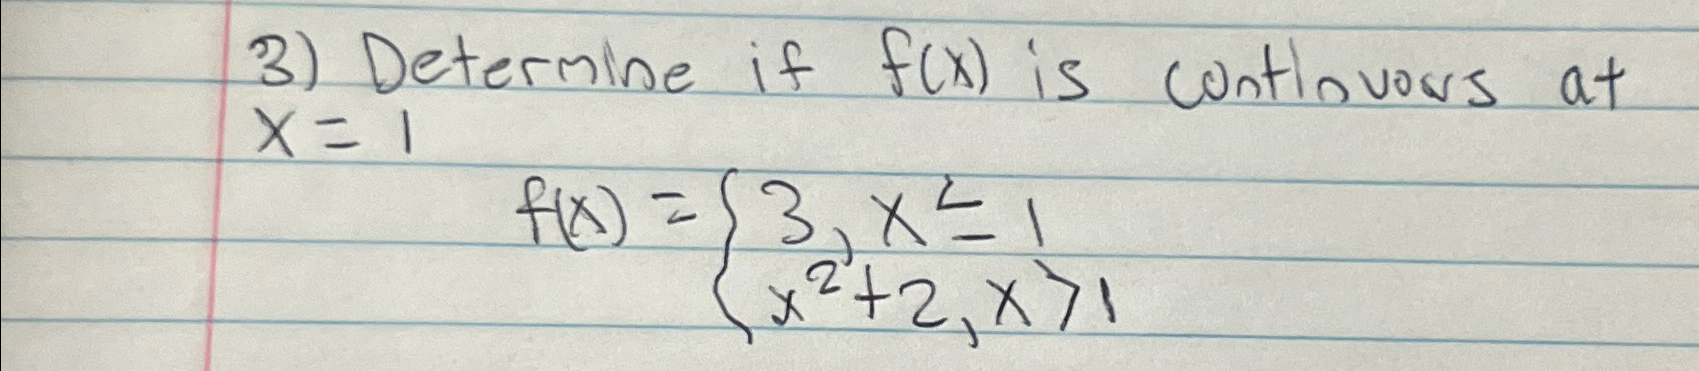 3) Determine if f(x) is continuous at
x = 1
f(x) = { 3, x ≤ 1
x² + 2, x > 1